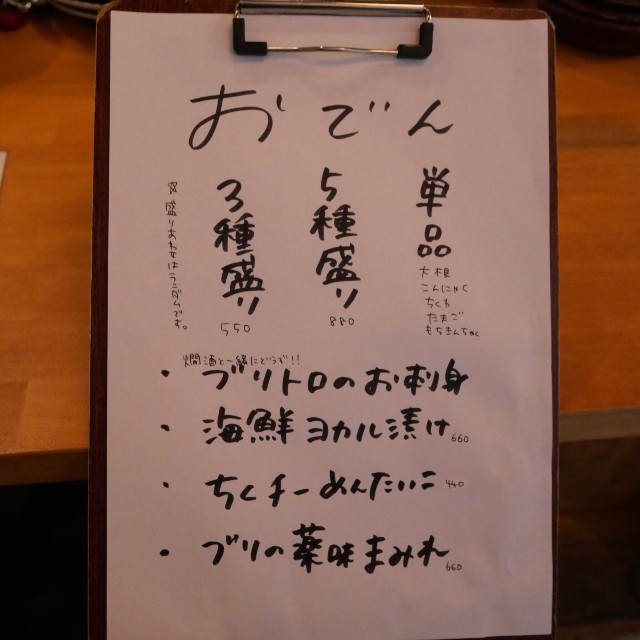 おでん
単品
大根
こんにゃく
ちくわ
たまご
もちきんちゃく
5種盛り
880
3種盛り
550
※盛りあわせはランダムです。
燗酒と一緒にどうぞ!!
・ブリトロのお刺身
・海鮮ヨカル漬け 660
・ちくチーめんたいこ 440
・ブリの薬味まみれ 660